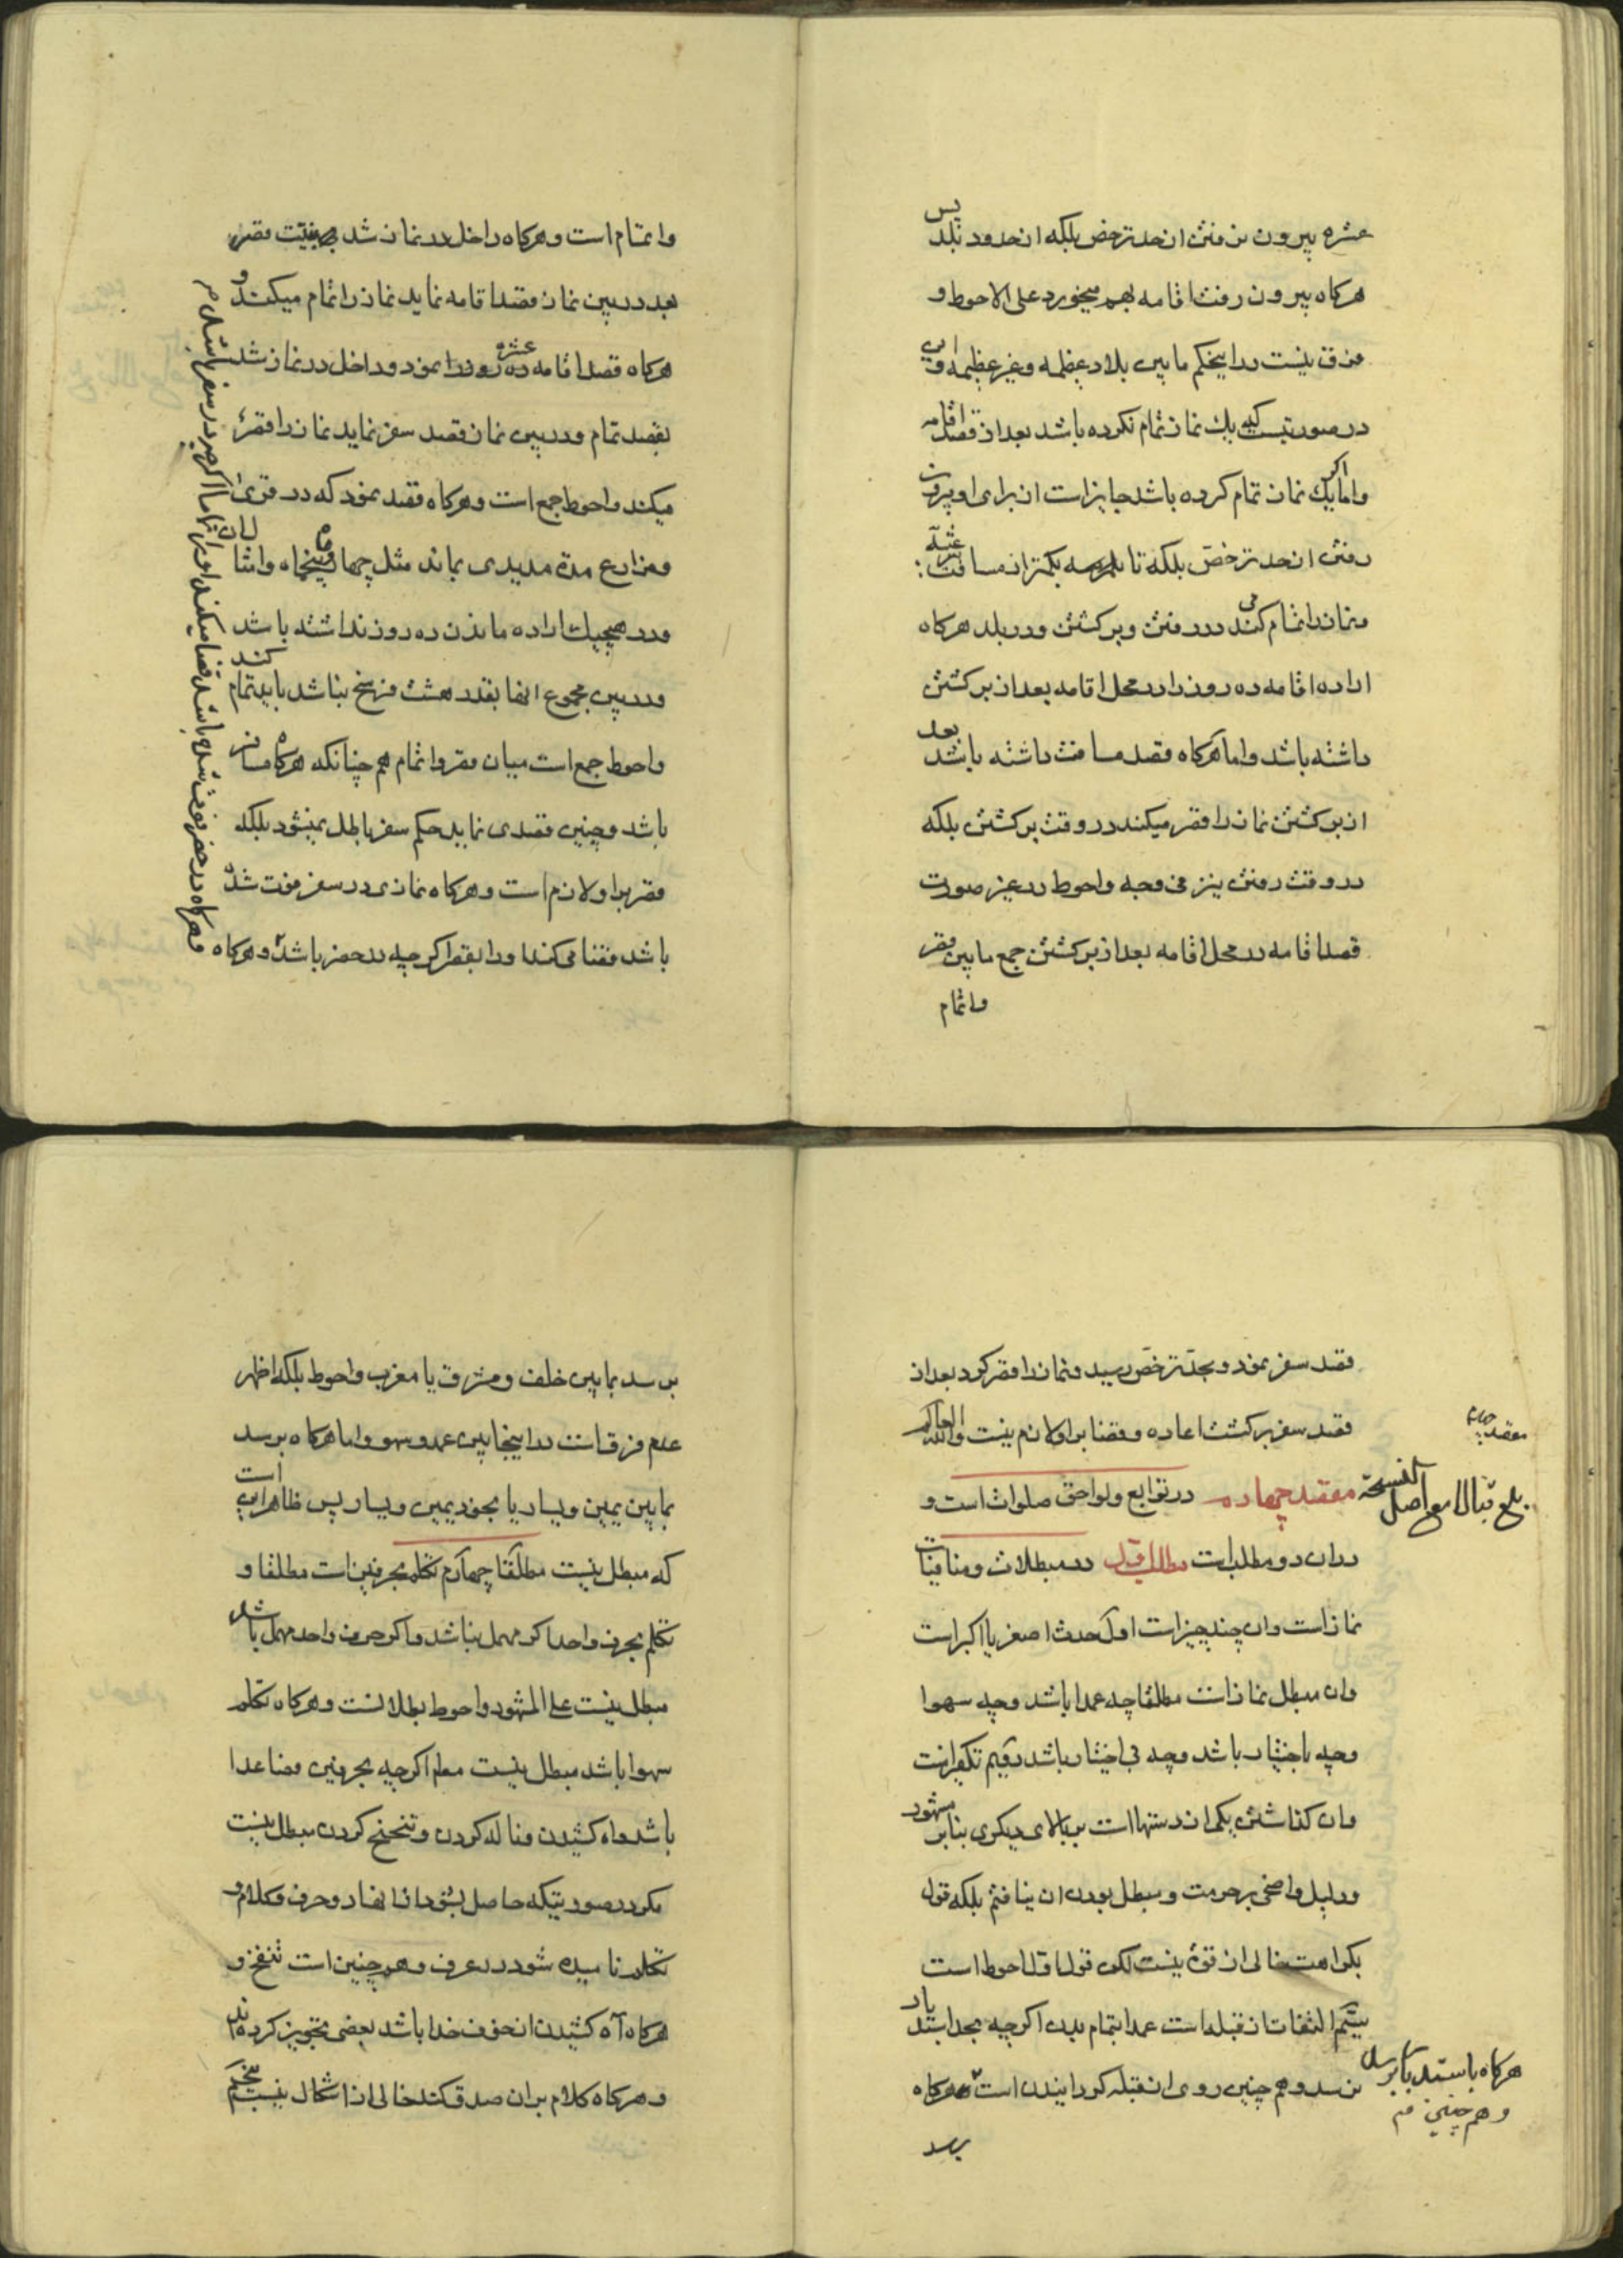 عشره بیرون نرفتن از حد ترخص بلکه از حدود بلد پس
هرکاه بیرون رفت اقامه بهم میخورد علی الاحوط و
فرق نیست در اینحکم مابین بلاد عظیمه و غیر عظیمه و این
در صورتیست که یک نماز تمام نکرده باشد بعد از قصد اقامه
و اما اکر یک نماز تمام کرده باشد جایز است از برای او بیرون
رفتن از حد ترخص بلکه تا بکمتر از مسافت
و نماز را تمام می کند در رفتن و برکشتن و در بلد هرکاه
اراده اقامه ده روز را در محل اقامه بعد از برکشتن
داشته باشد و اما هرکاه قصد مسافت داشته باشد بعد
از برکشتن نماز را قصر میکند در وقت برکشتن بلکه
در وقت رفتن نیز فی وجه و احوط در غیر صورت
قصد اقامه در محل اقامه بعد از برکشتن جمع مابین قصر
و اتمام
و اتمام است و هرکاه داخل در نماز شد بنیت قصر و
بعد در بین نماز قصد اقامه نماید نماز را تمام میکند و
هرکاه قصد اقامه عشره نمود و داخل در نماز شد
بقصد تمام و در بین نماز قصد سفر نماید نماز را قصر
میکند و احوط جمع است و هرکاه قصد نمود که در قری
و مزارع مدة مدیدی بماند مثل چهار ماه و پنجماه و امثال ان
و در هیچیک اراده ماندن ده روز نداشته باشد
و در بین مجموع انها بقدر هشت فرسخ نباشد باید تمام کند
و احوط جمع است میان قصر و اتمام هم چنانکه هرکاه مسافر
باشد و چنین قصدی نماید حکم سفر باطل نمیشود بلکه
قصر بر او لازم است و هرکاه نمازی در سفر فوت شده
باشد قضا می کند او را بقصر اکرچه در حضر باشد و هرکاه
و هرکاه در حضر فوت شده باشد قضا میکند او را تماما اکرچه در سفر باشد
قصد سفر نمود و بحد ترخص رسید و نماز را قصر کرد بعد از
قصد سفر برکشت اعاده و قضا بر او لازم نیست والله العالم
مقصد چهارم
مقصد چهارم در توابع و لواحق صلوات است و
بلغ قبالا مع اصل النسخة
در ان دو مطلب است مطلب اول در مبطلات و منافیات
نماز است و ان چند چیز است اول حدث اصغر یا اکبر است
و ان مبطل نماز است مطلقا چه عمدا باشد و چه سهوا
و چه باختیار باشد و چه بی اختیار باشد دویم تکفیر است
و ان کذاشتن یکی از دستها است بر بالای دیکری بنابر مشهور
و دلیل واضحی بر حرمت و مبطل بودن ان نیافتم بلکه قول
بکراهت خالی از قوة نیست لکن قول اول احوط است
سیّم التفات از قبله است عمدا بتمام بدن اکرچه بحد استدبار
نرسد و هم چنین روی از قبله کردانیدن است هرکاه
هرکاه باستدبار برسد
و هم چنین
برسد
برسد بمابین خلف و مشرق یا مغرب و احوط بلکه اظهر
عدم فرق است در اینجا بین عمد و سهو و اما هرکاه برسد
بمابین یمین و یسار یا بخود یمین و یسار پس ظاهر این است
که مبطل نیست مطلقا چهارم تکلم بحرفین است مطلقا و
تکلم بحرف واحد اکر مهمل نباشد و اکر حرف واحد مهمل باشد
مبطل نیست علی المشهور و احوط بطلانست و هرکاه تکلم
سهوا باشد مبطل نیست اکرچه بحرفین فصاعدا
باشد و اه کشیدن و ناله کردن و تنحنح کردن مبطل نیست
مکر در صورتیکه حاصل بشود از انها دو حرف و کلام و
تکلم نامیده شود در عرف و همچنین است تنفخ و
هرکاه آه کشیدن از خوف خدا باشد بعضی تجویز کرده اند
و هرکاه کلام بران صدق کند خالی از اشکال نیست پنجم